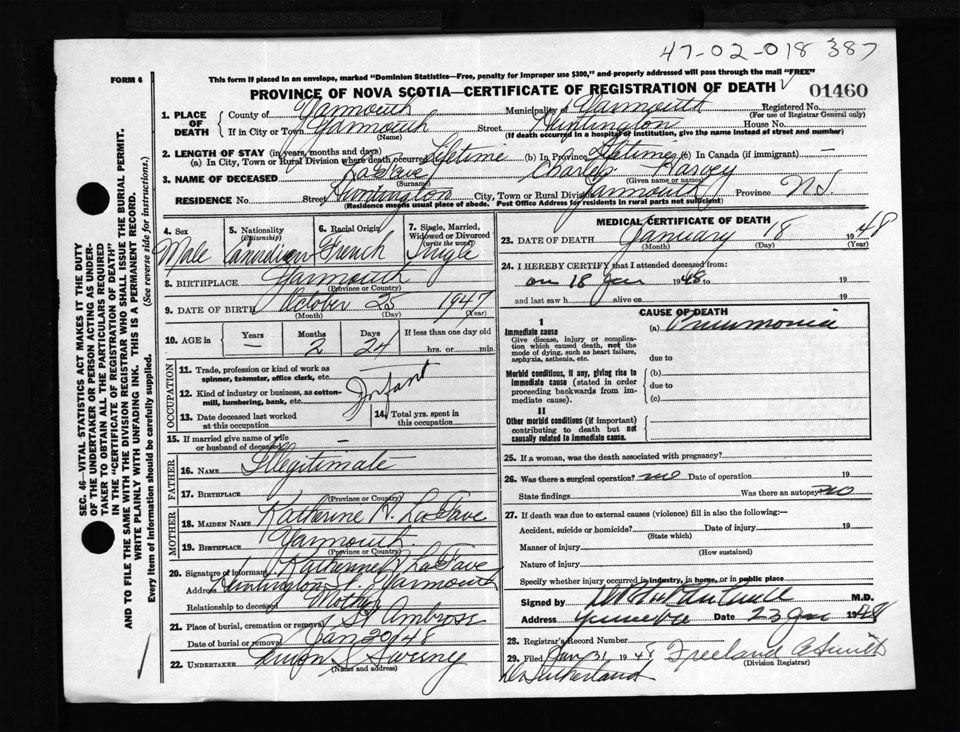 47-02-018387
This form if placed in an envelope, marked "Dominion Statistics—Free, penalty for improper use $300," and properly addressed will pass through the mail "FREE"
FORM 6
PROVINCE OF NOVA SCOTIA—CERTIFICATE OF REGISTRATION OF DEATH
01460
1. PLACE OF DEATH County of Yarmouth Municipality of Yarmouth Registered No.
(For use of Registrar General only)
If in City or Town Yarmouth Street Huntington House No.
(Name) (If death occurred in a hospital or institution, give the name instead of street and number)
2. LENGTH OF STAY (in years, months and days)
(a) In City, Town or Rural Division where death occurred Lifetime (b) In Province Lifetime (c) In Canada (if immigrant) —
3. NAME OF DECEASED LaFave Charles Harvey
(Surname) (Given name or names)
RESIDENCE No. Street Huntington City, Town or Rural Division Yarmouth Province N.S.
(Residence means usual place of abode. Post Office Address for residents in rural parts not sufficient)
4. Sex 5. Nationality (Citizenship) 6. Racial Origin 7. Single, Married, Widowed or Divorced (write the word)
Male Canadian French Single
8. BIRTHPLACE Yarmouth
(Province or Country)
9. DATE OF BIRTH October 25 1947
(Month) (Day) (Year)
10. AGE in Years Months Days If less than one day old
— 2 24 hrs. or min.
OCCUPATION
11. Trade, profession or kind of work as spinner, teamster, office clerk, etc.
Infant
12. Kind of industry or business, as cotton-mill, lumbering, bank, etc.
13. Date deceased last worked at this occupation
14. Total yrs. spent in this occupation
15. If married give name of wife or husband of deceased —
FATHER
16. NAME Illegitimate
17. BIRTHPLACE
(Province or Country)
MOTHER
18. MAIDEN NAME Katherine H. LaFave
19. BIRTHPLACE Yarmouth
(Province or Country)
20. Signature of informant Katherine LaFave
Address Huntington St. Yarmouth
Relationship to deceased Mother
21. Place of burial, cremation or removal St Ambrose
Date of burial or removal Jan 20/48
22. UNDERTAKER Sweeny
(Name and address)
MEDICAL CERTIFICATE OF DEATH
23. DATE OF DEATH January 18 1948
(Month) (Day) (Year)
24. I HEREBY CERTIFY that I attended deceased from:
on 18 Jan 1948 to 19
and last saw h alive on 19
CAUSE OF DEATH
I
Immediate cause
(a) Pneumonia
Give disease, injury or complication which caused death, not the mode of dying, such as heart failure, asphyxia, asthenia, etc.
due to
Morbid conditions, if any, giving rise to immediate cause (stated in order proceeding backwards from immediate cause).
(b)
due to
(c)
II
Other morbid conditions (if important) contributing to death but not causally related to immediate cause.
25. If a woman, was the death associated with pregnancy?
26. Was there a surgical operation? no Date of operation 19
State findings Was there an autopsy? no
27. If death was due to external causes (violence) fill in also the following:—
Accident, suicide or homicide? Date of injury 19
(State which)
Manner of injury
(How sustained)
Nature of injury
Specify whether injury occurred in industry, in home, or in public place
Signed by M.D.
Address Date 23 Jan 1948
28. Registrar's Record Number
29. Filed Jan 31 1948 Freeland A Smith
(Division Registrar)
Sutherland
SEC. 46—VITAL STATISTICS ACT MAKES IT THE DUTY
OF THE UNDERTAKER OR PERSON ACTING AS UNDER-
TAKER TO OBTAIN ALL THE PARTICULARS REQUIRED
IN THE "CERTIFICATE OF REGISTRATION OF DEATH"
AND TO FILE THE SAME WITH THE DIVISION REGISTRAR WHO SHALL ISSUE THE BURIAL PERMIT.
WRITE PLAINLY WITH UNFADING INK. THIS IS A PERMANENT RECORD.
Every item of information should be carefully supplied. (See reverse side for instructions.)